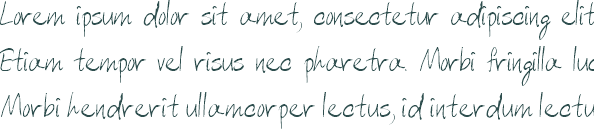 Lorem ipsum dolor sit amet, consectetur adipiscing elit
Etiam tempor vel risus nec pharetra. Morbi fringilla luc
Morbi hendrerit ullamcorper lectus, id interdum lectu